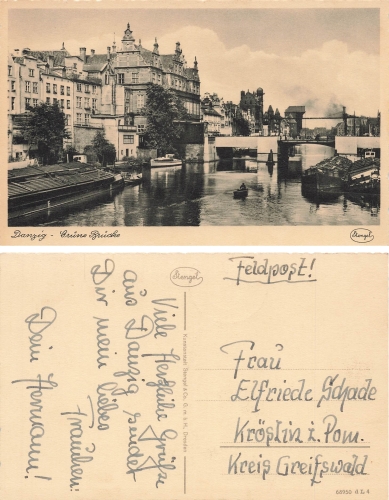 Danzig - Grüne Brücke
Stengel
Stengel
Feldpost!
Viele Herzliche Grüße
aus Danzig sendet
Dir mein liebes
Frauchen:
Dein Hermann!
Kunstanstalt Stengel & Co. G. m. b. H., Dresden
Frau
Elfriede Schade
Kröslin i. Pom.
Kreis Greifswald